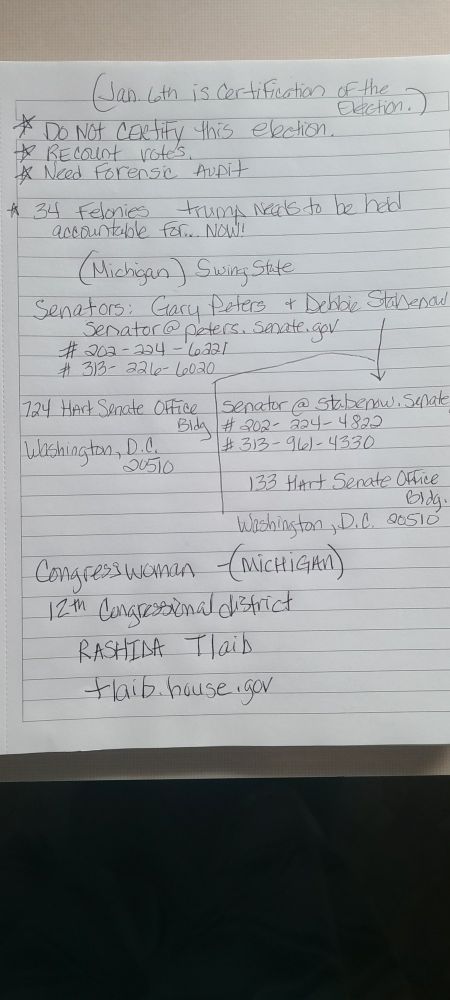 (Jan. 6th is Certification of the
Election.)
* DO NOT CERTIFY this election.
* RECOUNT votes.
* Need Forensic AUDIT
* 34 Felonies trump Needs to be held
accountable for... NOW!
(Michigan) Swing State
Senators: Gary Peters + Debbie Stabenow
Senator@peters.senate.gov
# 202-224-6221
# 313-226-6020
724 HArt Senate Office
Bldg
Washington, D.C.
20510
senator@stabenow.Senate
# 202-224-4822
# 313-961-4330
133 HArt Senate Office
Bldg.
Washington, D.C. 20510
Congresswoman -(MICHIGAN)
12th Congressional district
RASHIDA Tlaib
tlaib.house.gov